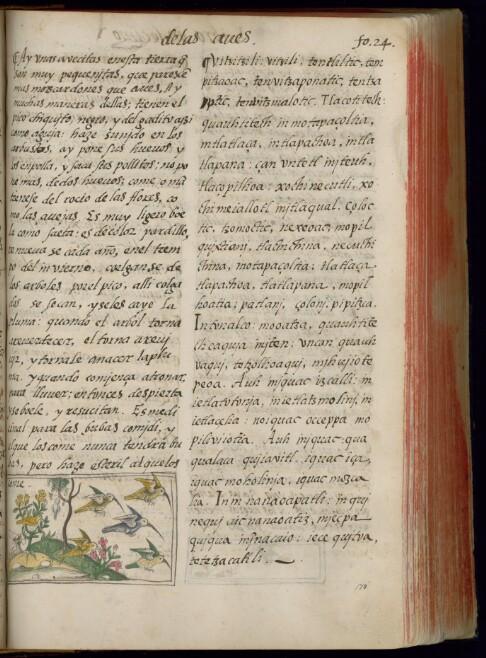 de las aues.
fo. 24.
Ay vnas avecitas enesta tierra q̃
son muy pequeñitas, que paresce
mas moxcardones que aues, Ay
muchas maneras dellas; tienen el
pico chiquito, negro, y delgadito asi
como aguja: haze su nido en los
arbustos, ay pone sus hueuos, y
los enpolla, y saca sus pollitos: no po
ne mas, de dos hueuos; come, o mã
tienese del rocio de las flores, co
mo las auejas. Es muy ligero bue
la como saeta: es de color pardillo,
renueuase cada año, en el tiem
po del invierno, cuelganse de
los arboles por el pico, alli colga
dos se secan, y seles caye la
pluma: quando el arbol torna
a reuerdecer, el torna a reuj
ujr, y tornale a nacer la plu
ma, y quando comjença a tronar,
para llouer; entonces despierta
y se buele, y resucitan. Es medi
cinal para las bubas comjdo, y
el que los come nunca tendra bu
bas, pero haze esteril al que los
come.
Vitzitzili: vitzili, tentliltic, ten
pitzaoac, tenvitzaponatic, tentza
ptic, tenvitzmalotic. Tlacotitech:
quauhtitech in motapaçoltia,
in tlatlaça, in tlapachoa, in tla
tlapana: çan vntetl in jteuh,
tlacopilhoa: xochinecutli, xo
chimeiallotl in jtlaqual, çoloc
tic, tzomoctic, nexeoac: mopil
quixtiani, tlachichina, necuchi
china, motapaçoltia: tlatlaça,
tlapachoa, tlatlapana, mopil
hoatia: patlanj, çolonj, pipitzca.
In tonalco: mooatza, quauhtite
ch caquia in jten: vncan quauh
vaquj, totzolhoaquj, mjhujiote
peoa. Auh in jquac izcalli: in
ie tlatotonja, in ie tlatzmolinj, in
ie tlacelia: no iquac occeppa mo
pilviiotia. Auh in jquac qua
qualaca quiiavitl, iquac iça,
iquac moholinja, iquac mozca
lia. Inin nanaoapatli: in quj
nequj aic nanaoatiz, mjecpa
quiqua in jnacaio: iece quitoa,
tetetzacatili.